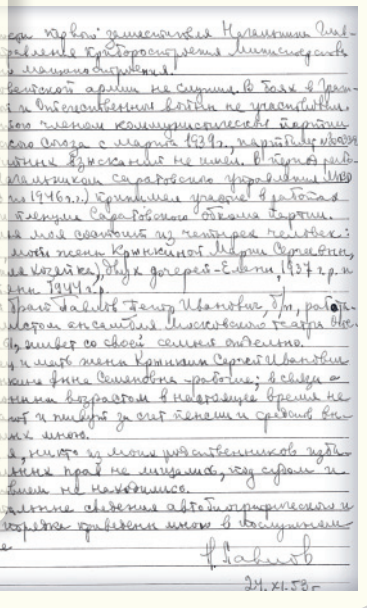 первого заместителя Начальника Глав-
равления Приборостроения Министерства
машиностроения.
ветской армии не служил. В боях в Граж-
и Отечественной войны не участвовал.
членом коммунистической партии
ского Союза с марта 1939 г., партбилет
взысканий не имел. В период рабо-
начальником Саратовского управления МГБ
по 1946 г.г.) принимал участие в работах
пленума Саратовского обкома партии.
моя состоит из четырех человек:
жены Крынкиной Марии Сергеевны,
двух дочерей - Елены, 1937 г.р. и
1944 г.р.
Брат Павлов Петр Иванович, б/п, работа-
ансамбля Московского театра
живет со своей семьей отдельно.
и мать жены Крынкин Сергей Иванович
Анна Семеновна - рабочие; в связи с
возрастом в настоящее время не
и живут за счет пенсии и средств
мною.
никто из моих родственников изби-
прав не лишались, под судом и
не находились.
сведения автобиографического
порядка приведены мною в послужном
Павлов
24.XI.53 г.